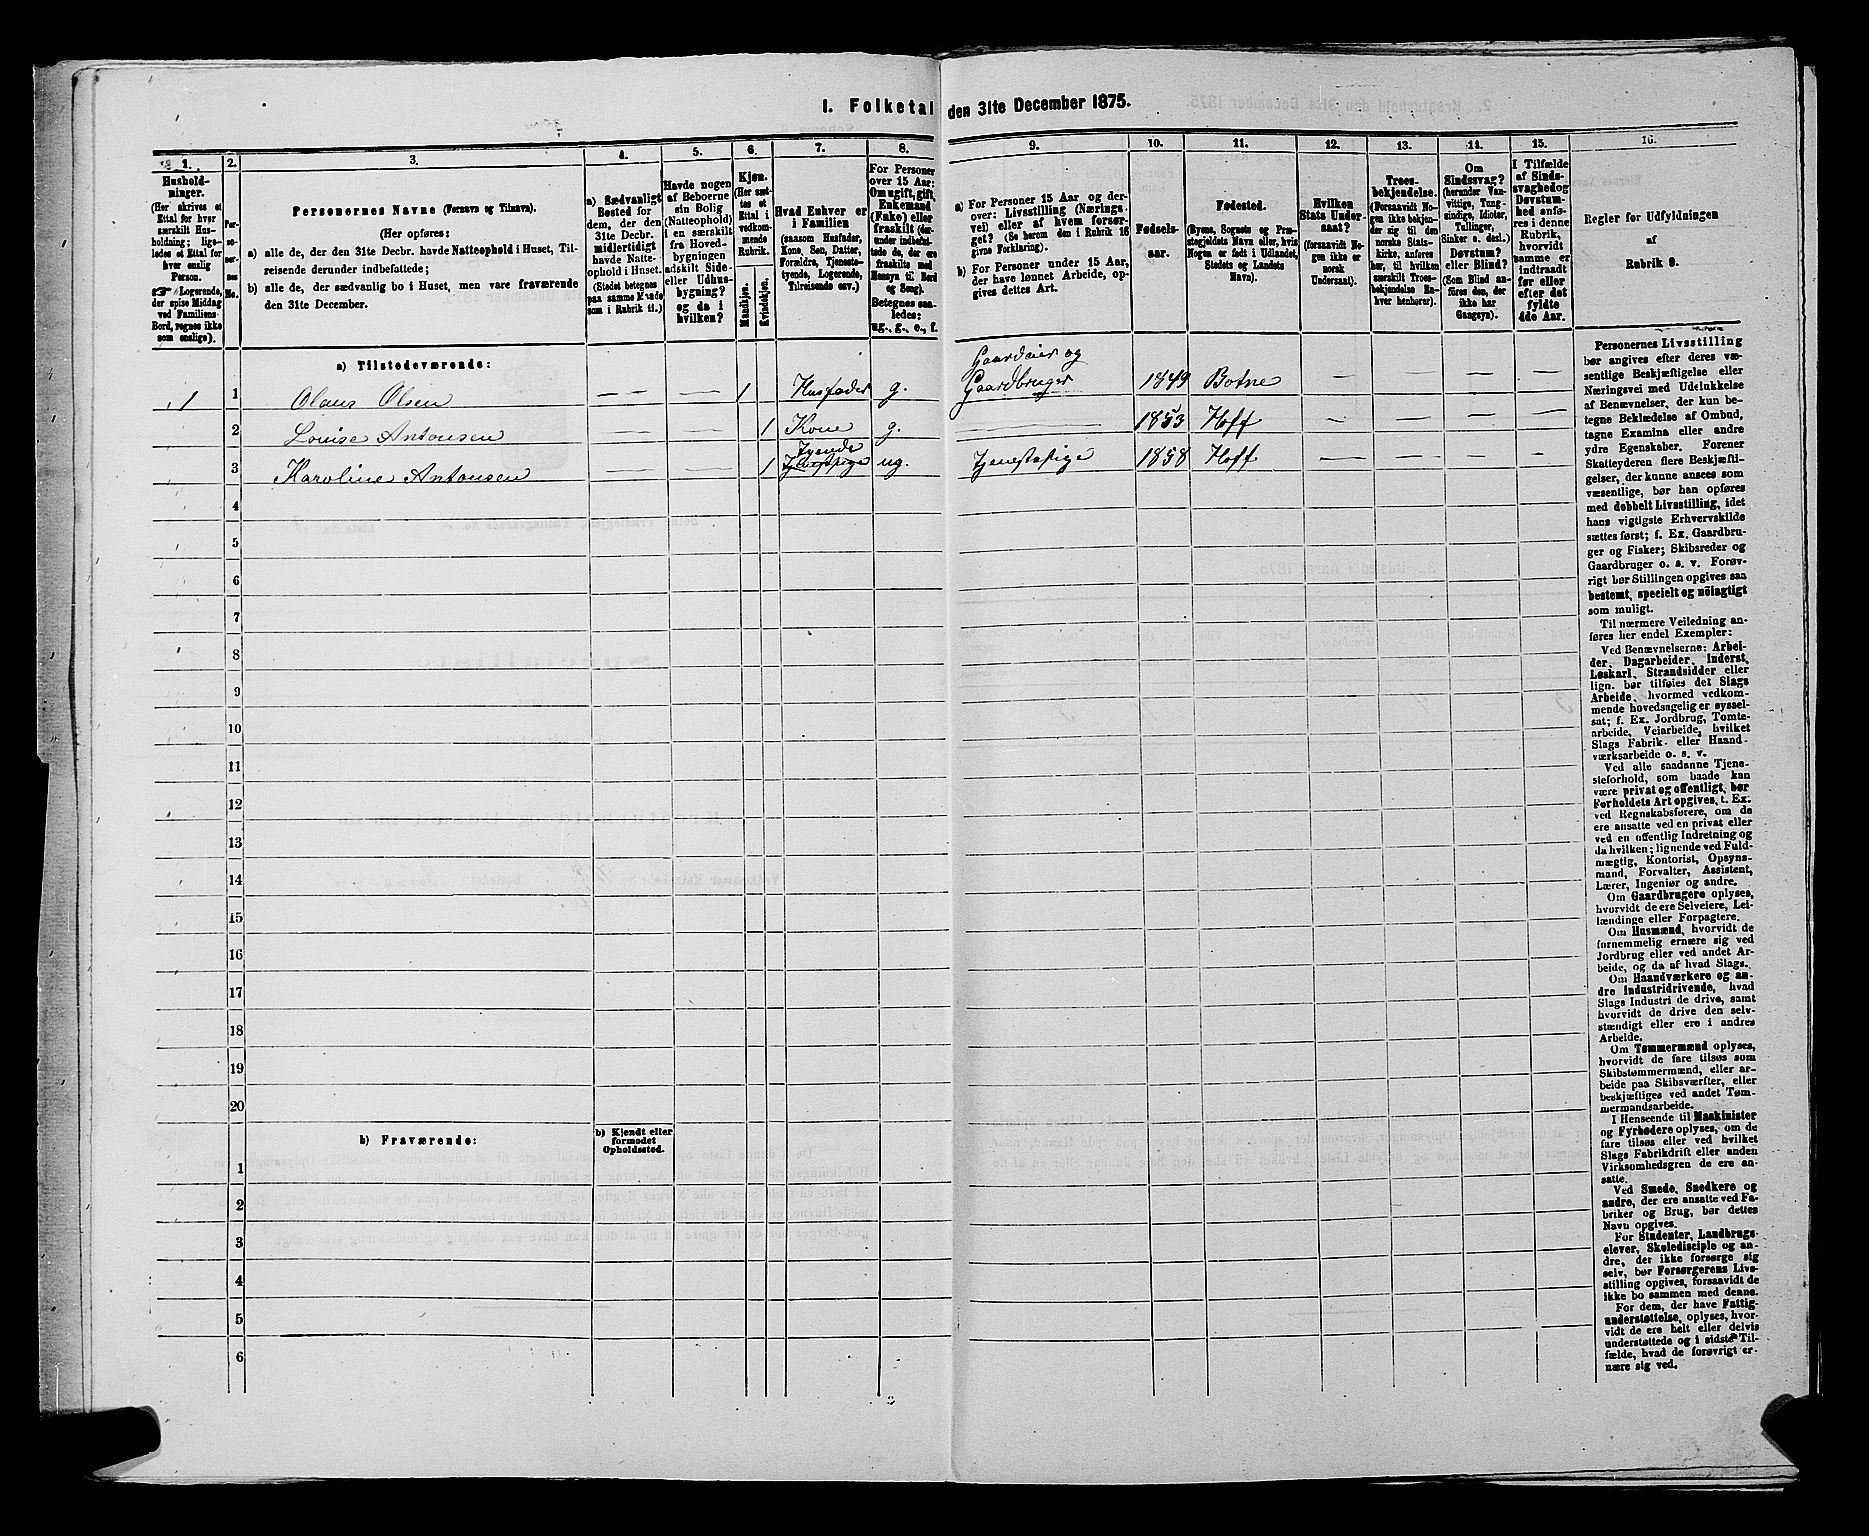 I. Folketal den 31te December 1875.
1. 2. 3. 4. 5. 6. 7. 8. 9. 10. 11. 12. 13. 14. 15. 16.
Hushold-
ninger.
(Her skrives et
Ettal for hver
særskilt Hus-
holdning; lige-
ledes et Ettal for
hver enslig
Person.
☛ Logerende,
der spise Middag
ved Familiens
Bord, regnes ikke
som enslige).
Per-
so-
ner-
nes
No.
Personernes Navne (Fornavn og Tilnavn).
(Her opføres:
a) alle de, der den 31te Decbr. havde Natteophold i Huset, Til-
reisende derunder indbefattede;
b) alle de, der sædvanlig bo i Huset, men vare fraværende
den 31te December.
a) Sædvanligt
Bosted for
dem, der den
31te Decbr.
midlertidigt
havde Natte-
ophold i Huset.
(Stedet betegnes
paa samme Maade
som i Rubrik 11.)
Havde nogen
af Beboerne
sin Bolig
(Natteophold)
i en særskilt
fra Hoved-
bygningen
adskilt Side-
eller Udhus-
bygning?
og da i
hvilken?
Kjøn.
(Her sæt-
tes et
Ettal i
vedkom-
mende
Rubrik.
Mandkjøn.
Kvindekjøn.
Hvad Enhver er
i Familien
(saasom Husfader,
Kone, Søn, Datter,
Forældre, Tjeneste-
tyende, Logerende,
Tilreisende osv.)
For Personer
over 15 Aar:
Om ugift, gift,
Enkemand
(Enke) eller
fraskilt (der-
under indbefat-
tede de, der ere
fraskilte med
Hensyn til Bord
og Seng).
Betegnes saa-
ledes:
ug., g., e., f.
a) For Personer 15 Aar og der-
over: Livsstilling (Nærings-
vei) eller af hvem forsør-
get? (Se herom den i Rubrik 16
givne Forklaring).
b) For Personer under 15 Aar,
der have lønnet Arbeide, op-
gives dettes Art.
Fødsels-
aar.
Fødested.
(Byens, Sognets og Præ-
stegjeldets Navn eller, hvis
Nogen er født i Udlandet,
Stedets og Landets
Navn).
Hvilken
Stats Under-
saat?
(forsaavidt No-
gen ikke er
norsk
Undersaat).
Troes-
bekjendelse.
(Forsaavidt No-
gen ikke bekjen-
der sig til den
norske Stats-
kirke, anføres
her, til hvilken
særskilt Troes-
bekjendelse En-
hver henhører).
Om
Sindssvag?
(herunder Van-
vittige, Tung-
sindige, Idioter,
Tullinger,
Sinker o. desl.)
Døvstum?
eller Blind?
(Som Blind an-
føres den, der
ikke har
Gangsyn).
I Tilfælde
af Sinds-
svaghed og
Døvstum-
hed anfø-
res i denne
Rubrik,
hvorvidt
samme er
indtraadt
før eller
efter det
fyldte
4de Aar.
Regler for Udfyldningen
af
Rubrik 9.
a) Tilstedeværende:
Gaardeier og
1 1 Olaus Olsen — — 1 Husfader g. Gaardbruger 1849 Botne — — — —
2 Lovise Antonsen — — 1 Kone g. — 1853 Hoff — — — —
Tyende
3 Karoline Antonsen — — 1 Tjenestpige ug. Tjenestepige 1858 Hoff — — — —
4
5
6
7
8
9
10
11
12
13
14
15
16
17
18
19
20
b) Fraværende:
b) Kjendt eller
formodet
Opholdssted.
1
2
3
4
5
6
Personernes Livsstilling
bør angives efter deres væ-
sentlige Beskjæftigelse eller
Næringsvei med Udelukkelse
af Benævnelser, der kun be-
tegne Beklædelse af Ombud,
tagne Examina eller andre
ydre Egenskaber. Forener
Skatteyderen flere Beskjæfti-
gelser, der kunne ansees som
væsentlige, bør han opføres
med dobbelt Livsstilling, idet
hans vigtigste Erhvervskilde
sættes først; f. Ex. Gaardbru-
ger og Fisker; Skibsreder og
Gaardbruger o. s. v. Forøv-
rigt bør Stillingen opgives saa
bestemt, specielt og nøiagtigt
som muligt.
Til nærmere Veiledning an-
føres her endel Exempler:
Ved Benævnelserne: Arbei-
der, Dagarbeider, Inderst,
Løskarl, Strandsidder eller
lign. bør tilføies det Slags
Arbeide, hvormed vedkom-
mende hovedsagelig er syssel-
sat; f. Ex. Jordbrug, Tomte-
arbeide, Veiarbeide, hvilket
Slags Fabrik- eller Haand-
værksarbeide o. s. v.
Ved alle saadanne Tjene-
steforhold, som baade kan
være privat og offentligt, bør
Forholdets Art opgives, t. Ex.
ved Regnskabsførere, om de
ere ansatte ved en privat eller
ved en offentlig Indretning og
da hvilken; lignende ved Fuld-
mægtig, Kontorist, Opsyns-
mand, Forvalter, Assistent,
Lærer, Ingeniør og andre.
Om Gaardbrugere oplyses,
hvorvidt de ere Selveiere, Lei-
lændinge eller Forpagtere.
Om Husmænd, hvorvidt de
fornemmelig ernære sig ved
Jordbrug eller ved andet Ar-
beide, og da af hvad Slags.
Om Haandværkere og an-
dre Industridrivende, hvad
Slags Industri de drive, samt
hvorvidt de drive den selv-
stændigt eller ere i andres
Arbeide.
Om Tømmermænd oplyses,
hvorvidt de fare tilsøs som
Skibstømmermænd, eller ar-
beide paa Skibsværfter, eller
beskjæftiges ved andet Tøm-
mermandsarbeide.
I Henseende til Maskinister
og Fyrbødere oplyses, om de
fare tilsøs eller ved hvilket
Slags Fabrikdrift eller anden
Virksomhedsgren de ere an-
satte.
Ved Smede, Snedkere og
andre, der ere ansatte ved Fa-
briker og Brug, bør dettes
Navn opgives.
For Studenter, Landbrugs-
elever, Skoledisciple og an-
dre, der ikke forsørge sig
selv, bør Forsørgerens Livs-
stilling opgives, forsaavidt de
ikke bo sammen med denne.
For dem, der have Fattig-
understøttelse, oplyses, hvor-
vidt de ere helt eller delvis
understøttede og i sidste Til-
fælde, hvad de forøvrigt er-
nære sig ved.